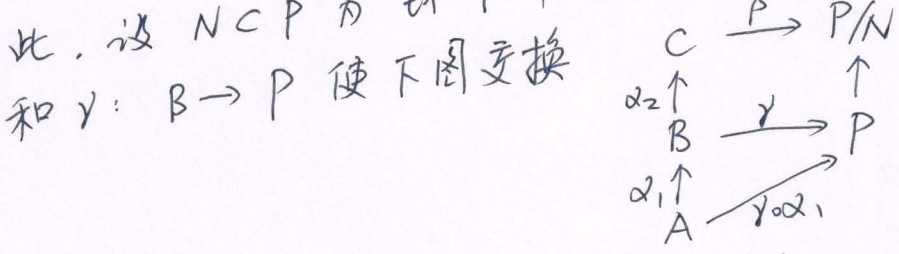 此, 设 N ⊂ P 为
和 γ: B → P 使下图交换
C → P/N
α₂ ↑ ↑
B →γ P
α₁ ↑ γ∘α₁
A